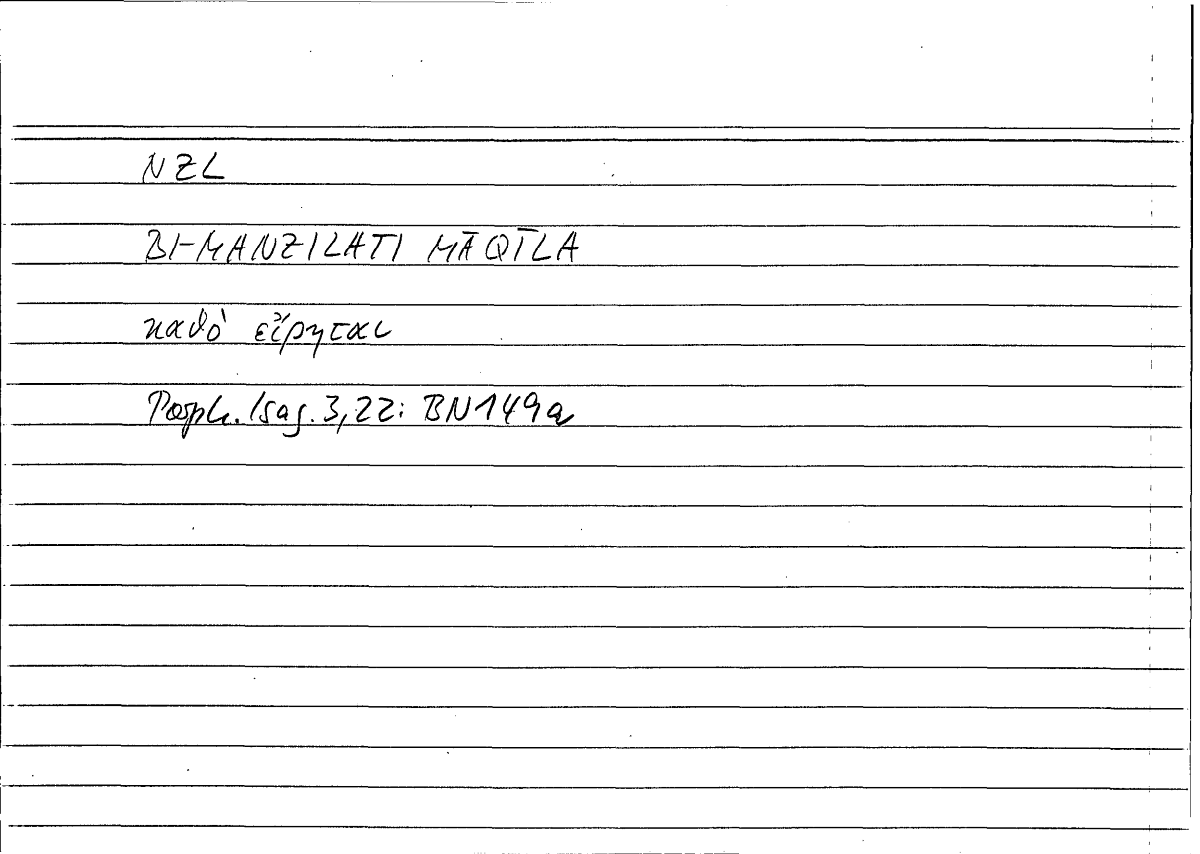 NZL
BI-MANZILATI MĀ QĪLA
καθὸ εἴρηται
Porph. Isag. 3,22: BN149a